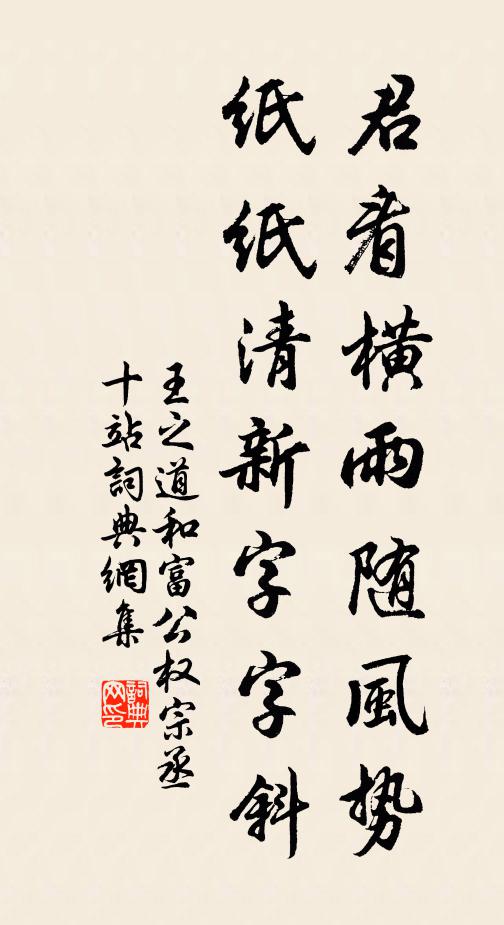 君看横雨随風势
纸纸清新字字斜
王之道和富公权宗丞
十站詞典網集
詞典网印